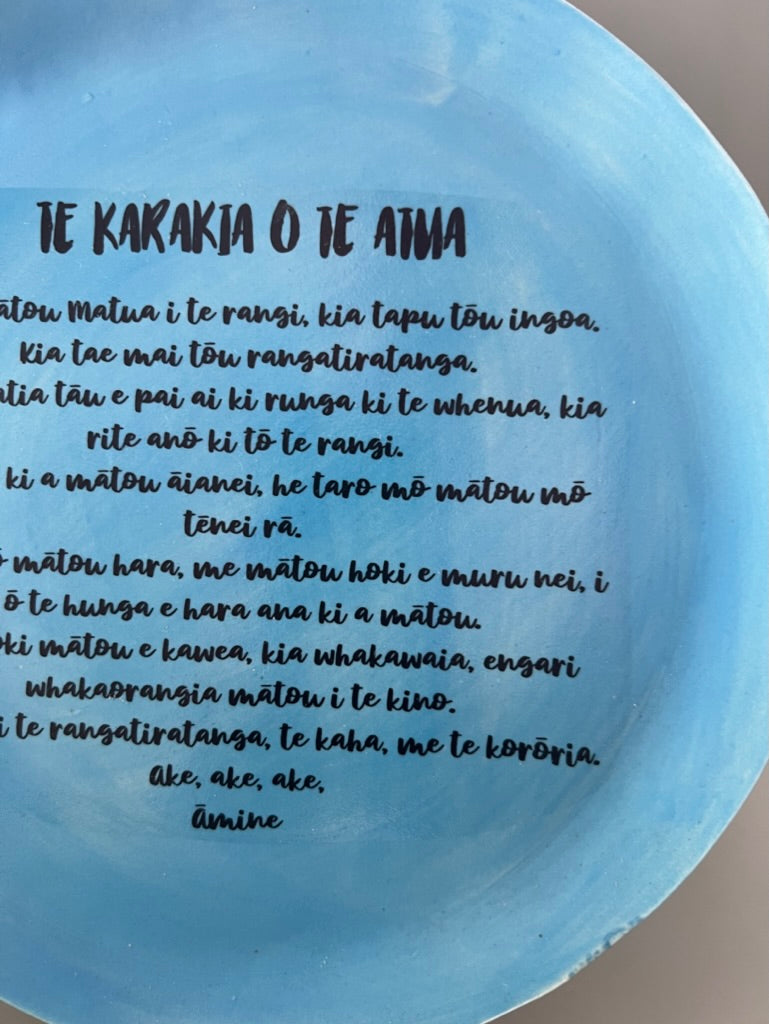 TE KARAKIA O TE ATUA
mātou Matua i te rangi, kia tapu tōu ingoa.
Kia tae mai tōu rangatiratanga.
tāu e pai ai ki runga ki te whenua, kia
rite anō ki tō te rangi.
ki a mātou āianei, he taro mō mātou mō
tēnei rā.
mātou hara, me mātou hoki e muru nei, i
ō te hunga e hara ana ki a mātou.
mātou e kawea, kia whakawaia, engari
whakaorangia mātou i te kino.
te rangatiratanga, te kaha, me te korōria.
Ake, ake, ake,
Āmine